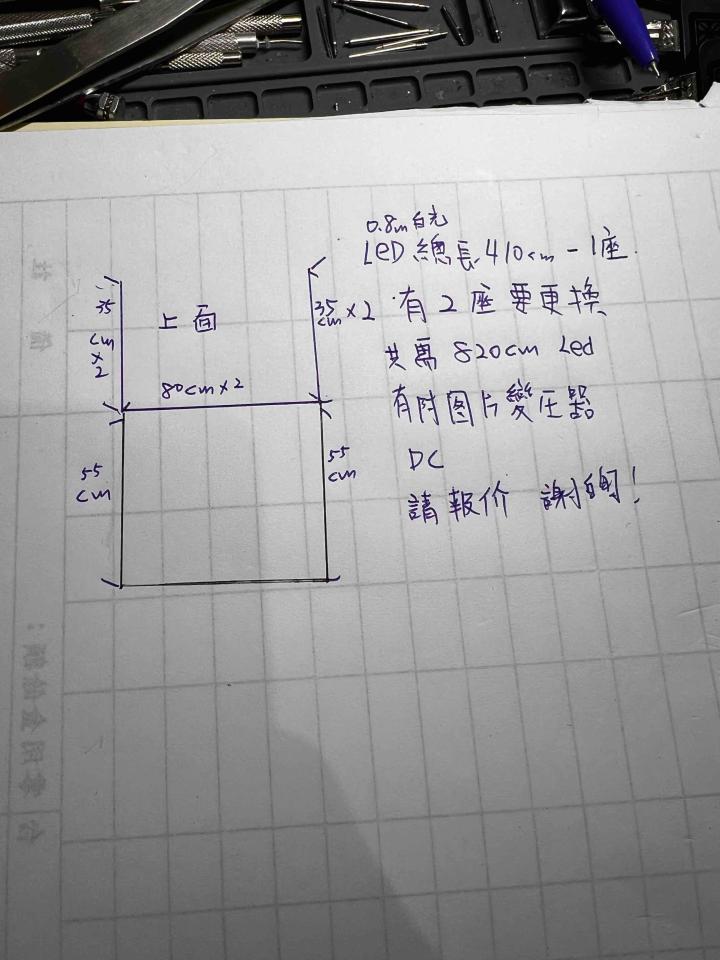 0.8m白光
LED 總長 410cm - 1座
有 2 座要更換
共需 820cm Led
有附图片變圧器
DC
請報价 謝謝!
上面
35
cm
×
2
35
cm ×2
80cm×2
55
cm
55
cm